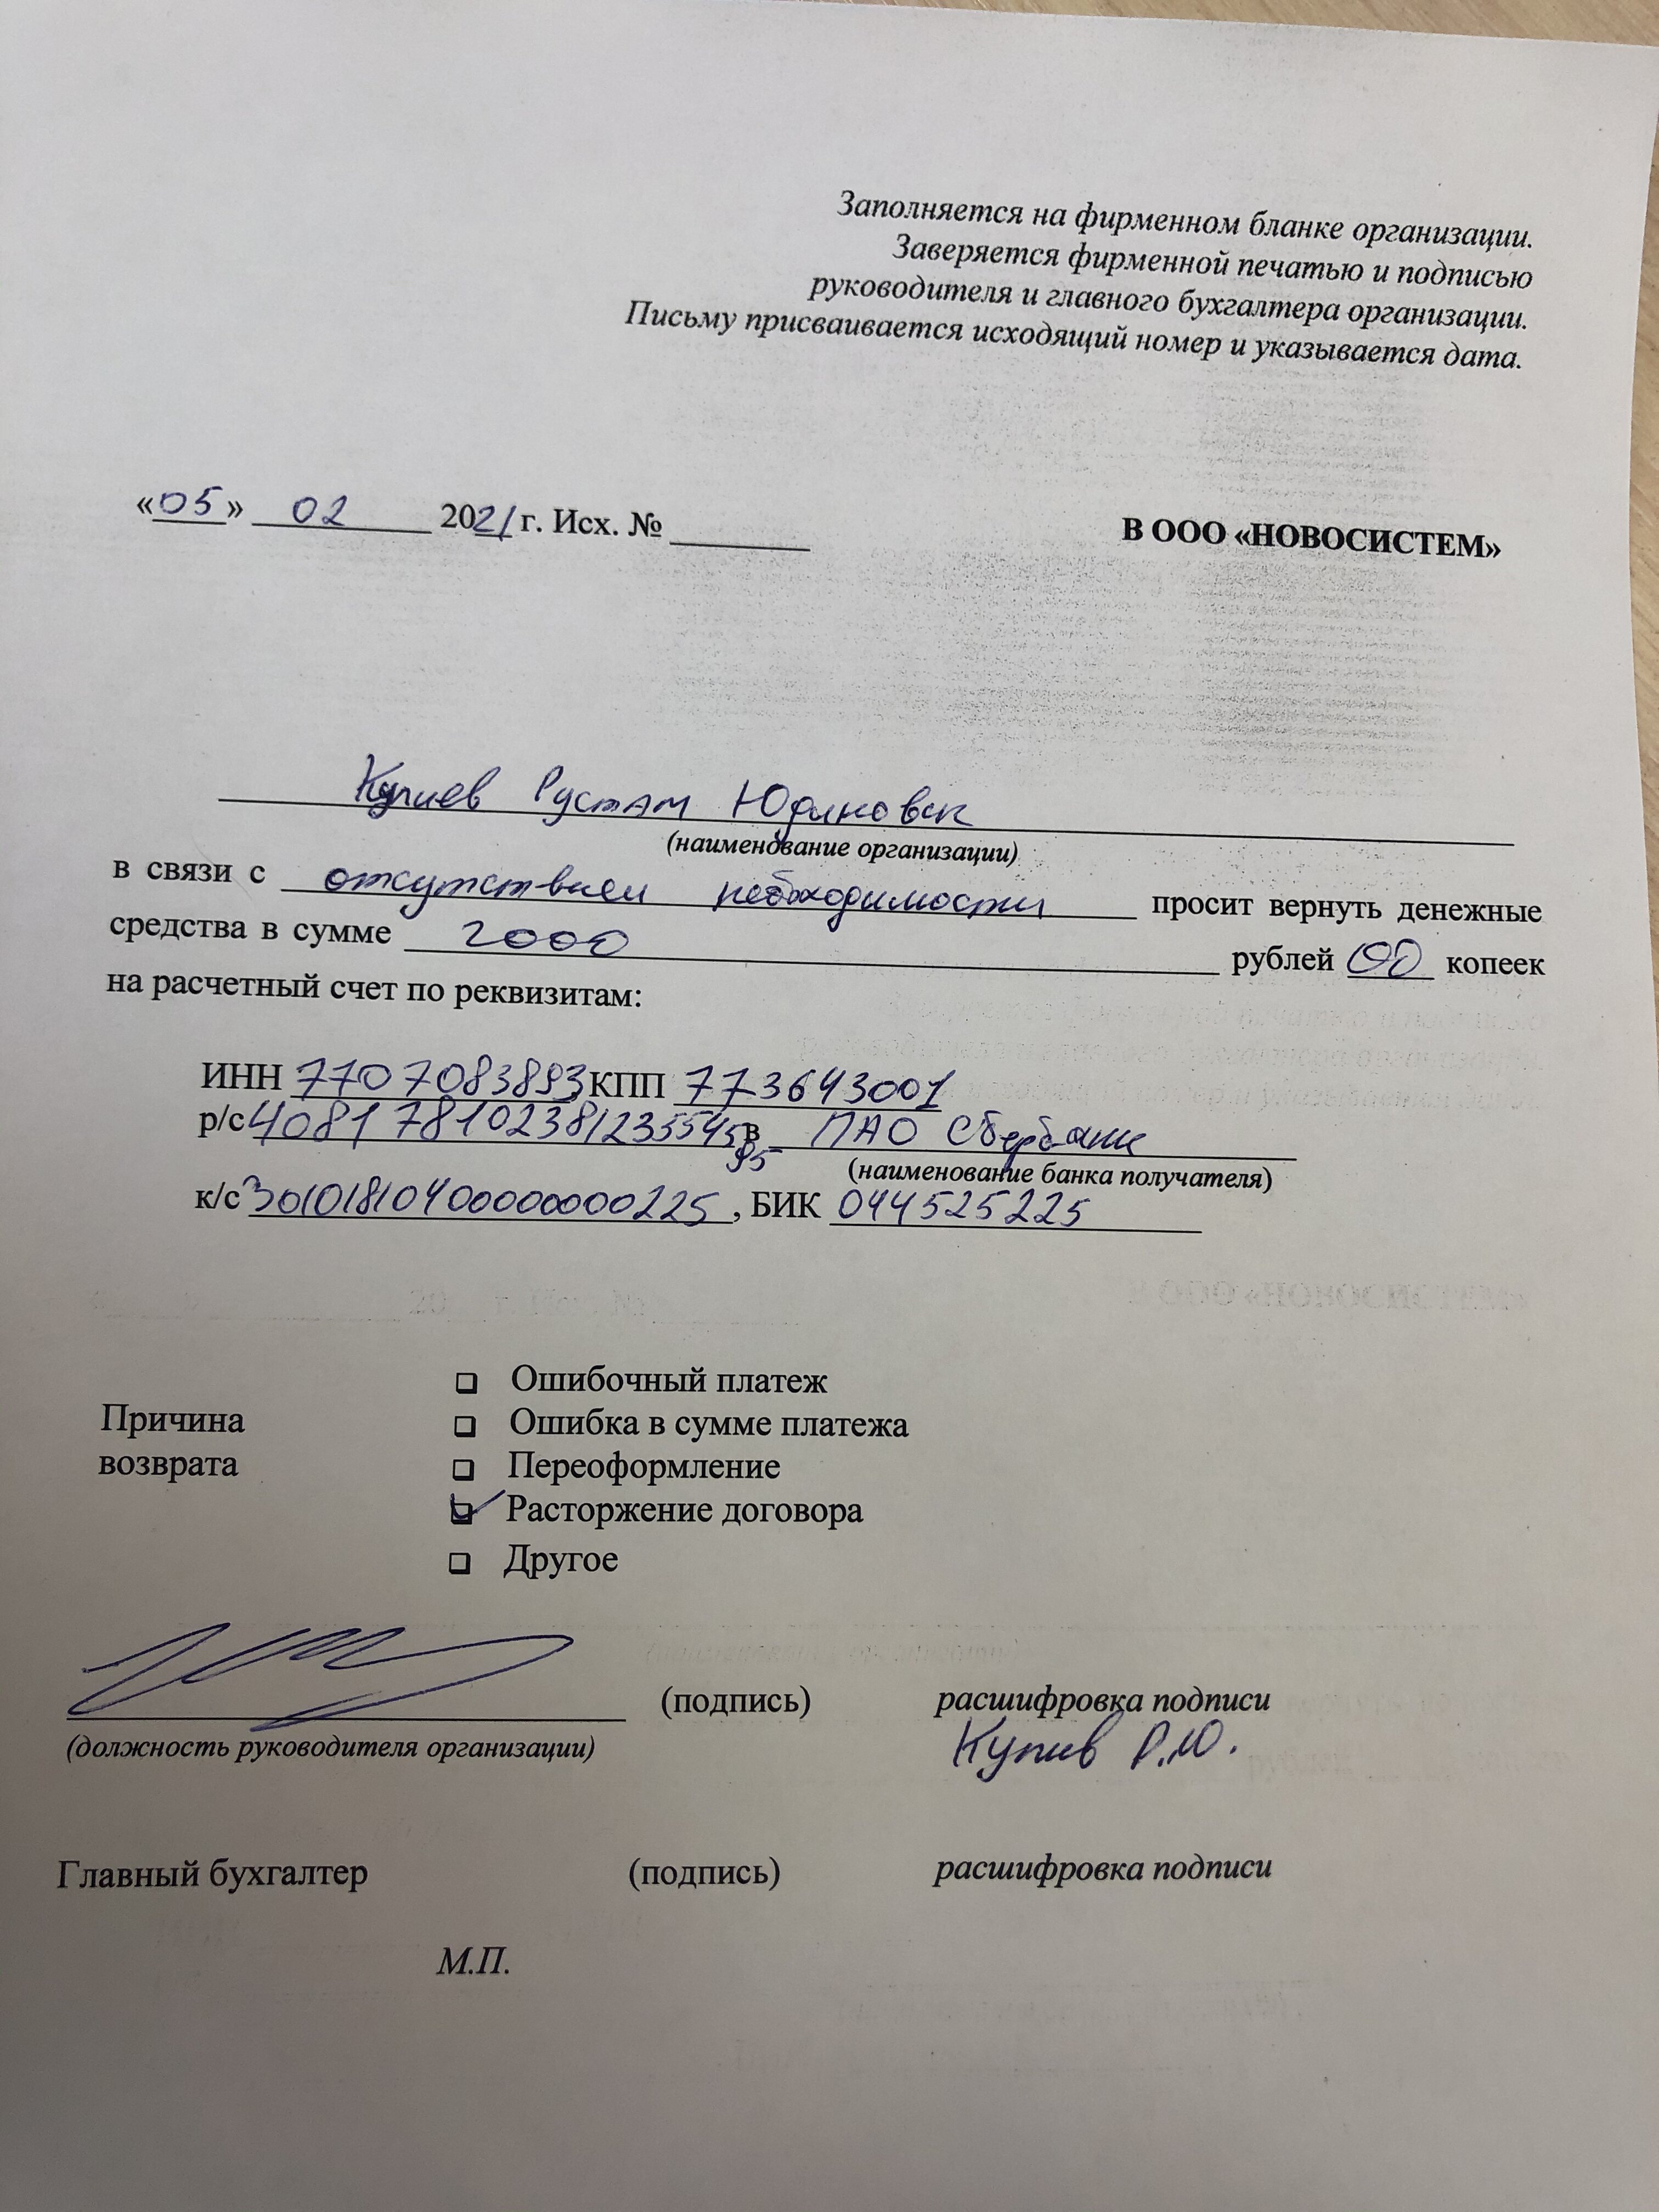 Заполняется на фирменном бланке организации.
Заверяется фирменной печатью и подписью
руководителя и главного бухгалтера организации.
Письму присваивается исходящий номер и указывается дата.
«05» 02 2021 г. Исх. № ________
В ООО «НОВОСИСТЕМ»
Рустам
(наименование организации)
в связи с отсутствием необходимости просит вернуть денежные
средства в сумме 2000 рублей 00 копеек
на расчетный счет по реквизитам:
ИНН 7707083893, КПП 773643001
р/с в ПАО Сбербанк
(наименование банка получателя)
к/с 30101810400000000225, БИК 044525225
Причина возврата
❑ Ошибочный платеж
❑ Ошибка в сумме платежа
❑ Переоформление
☑ Расторжение договора
❑ Другое
(подпись) расшифровка подписи
(должность руководителя организации) Р.Ю.
Главный бухгалтер (подпись) расшифровка подписи
М.П.